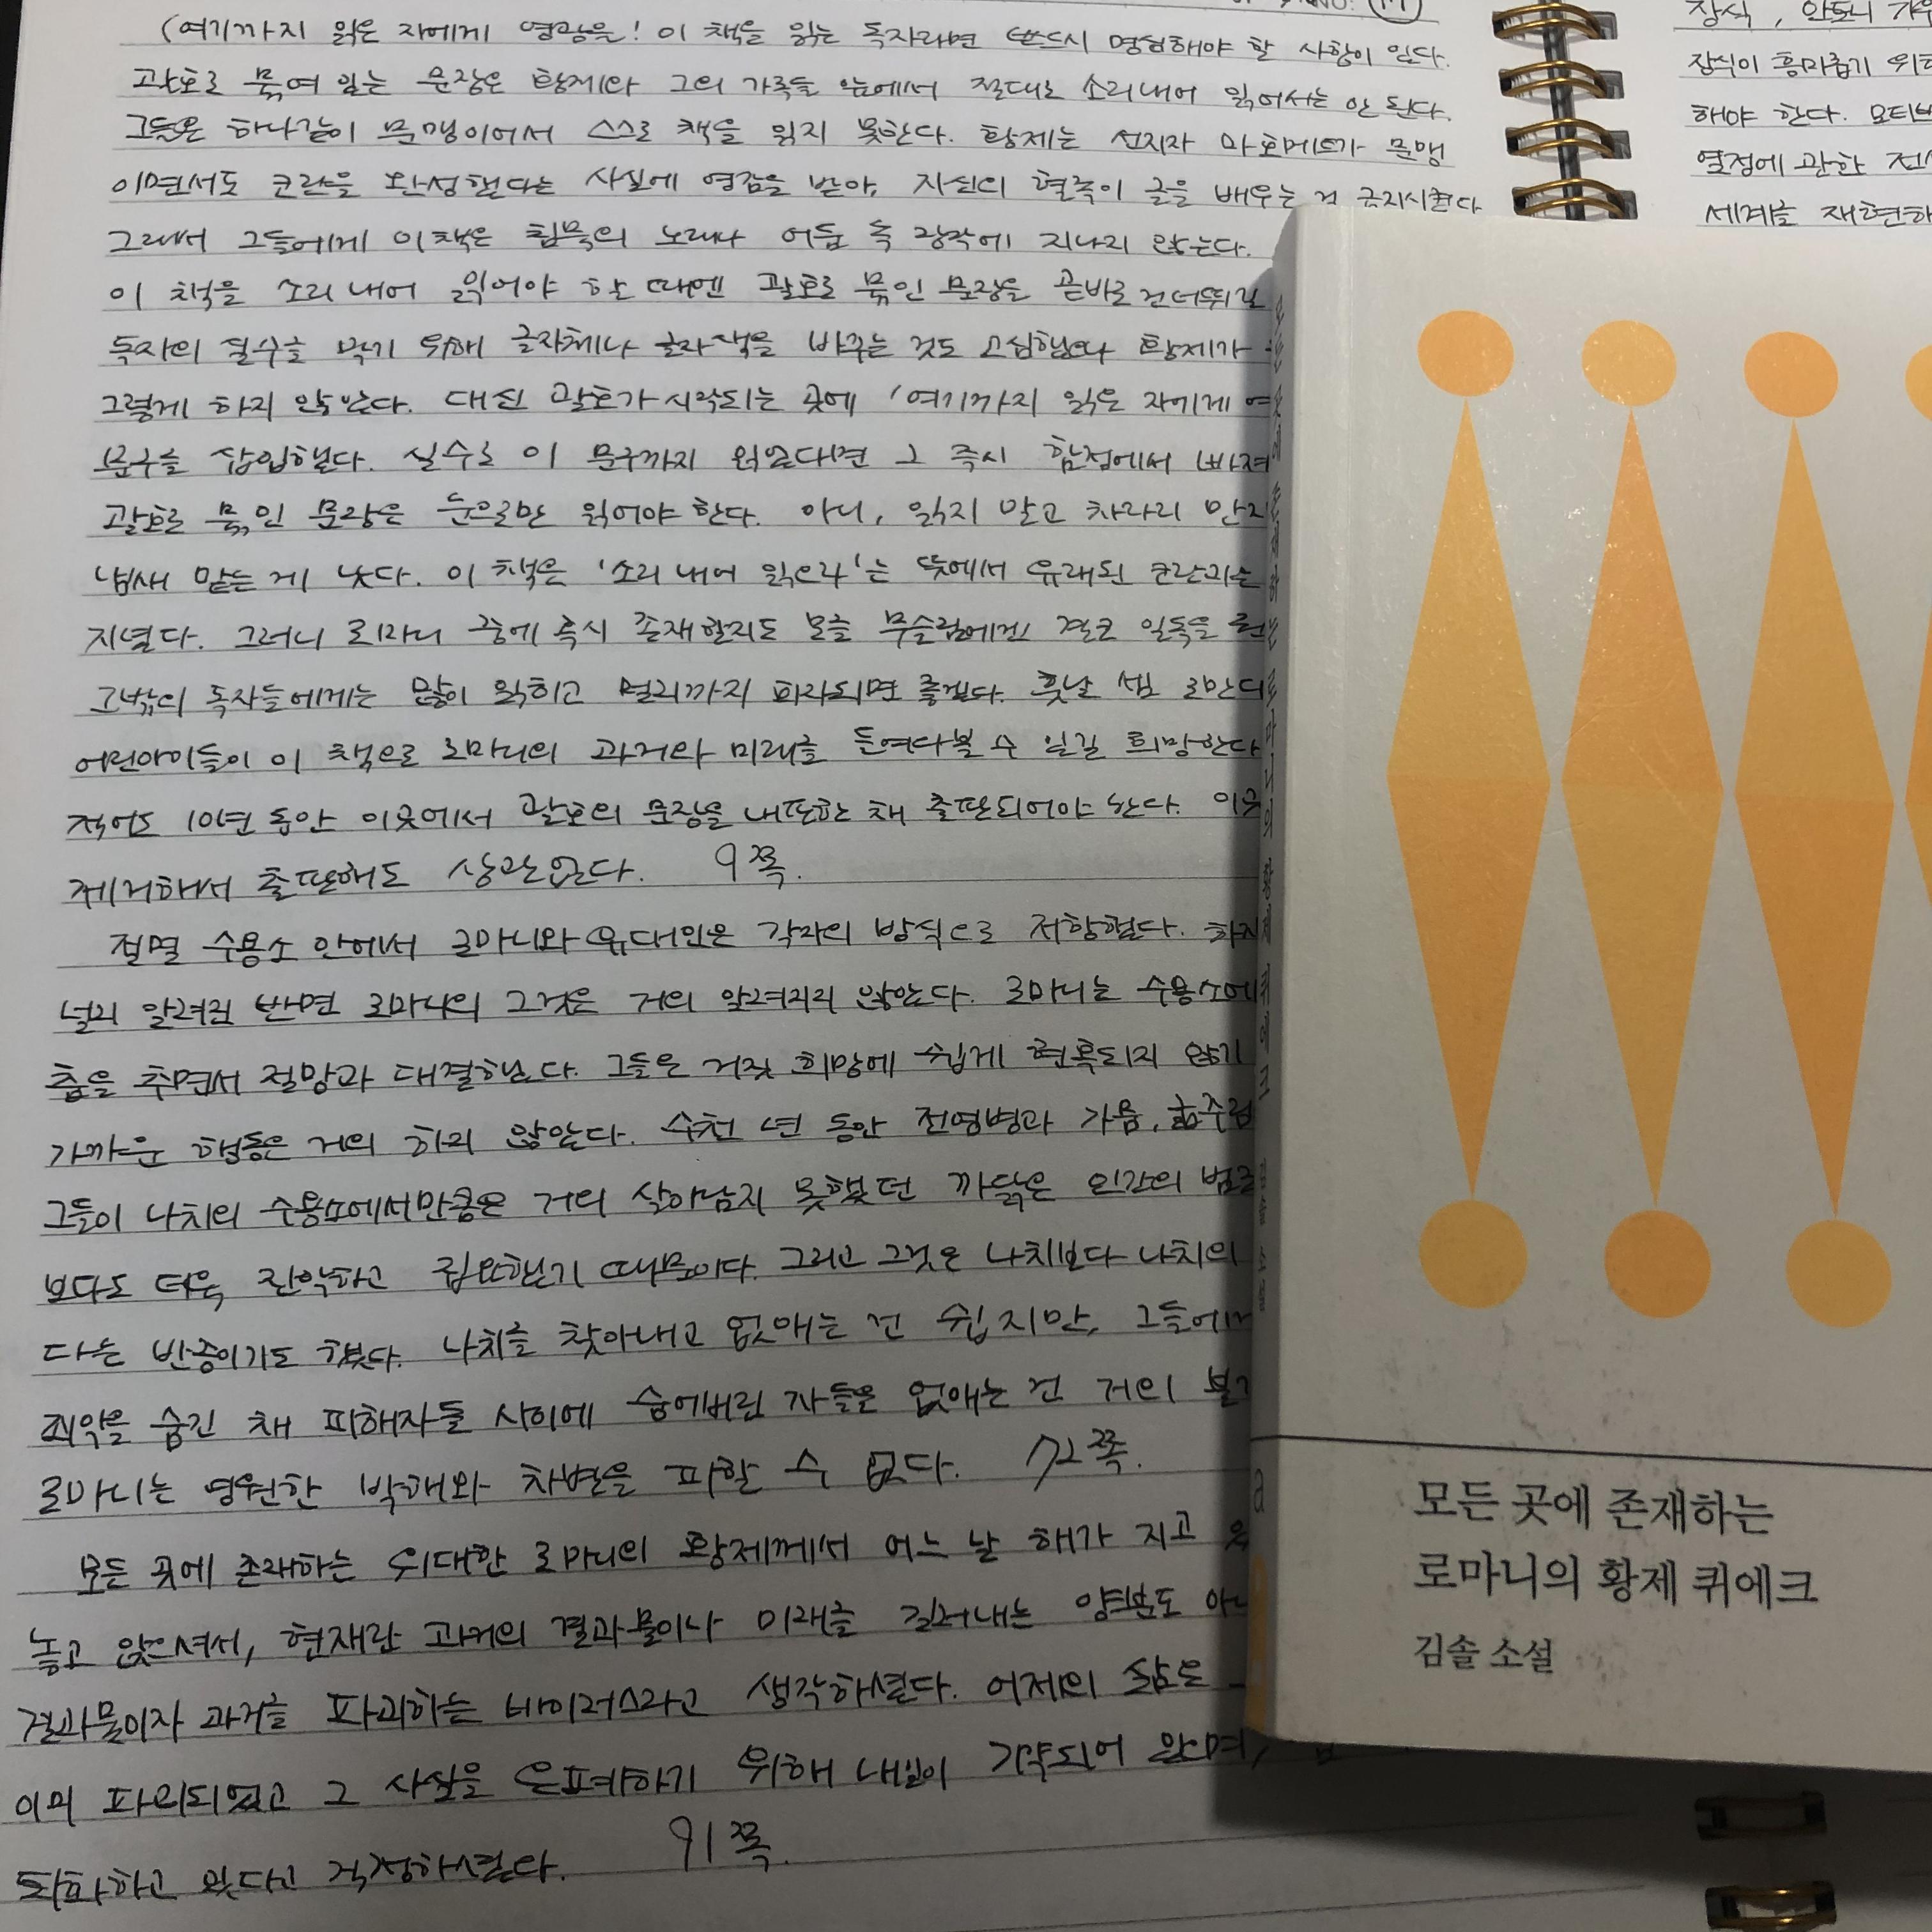 (여기까지 읽은 자에게 영광을! 이 책을 읽는 독자라면 반드시 명심해야 할 사항이 있다.
괄호로 묶여 있는 문장은 황제와 그의 가족들 앞에서 절대로 소리내어 읽어서는 안 된다.
그들은 하나같이 문맹이어서 스스로 책을 읽지 못한다. 황제는 선지자 마호메트가 문맹
이면서도 코란을 완성했다는 사실에 영감을 받아, 자신의 혈족이 글을 배우는 걸 금지시켰다
그래서 그들에게 이 책은 침묵의 노래나 어둠 속 장작에 지나지 않는다.
이 책을 소리 내어 읽어야 할 때엔 괄호로 묶인 문장을 곧바로 건너뛰길
독자의 실수를 막기 위해 글자체나 글자색을 바꾸는 것도 고심했으나 황제가
그렇게 하지 않았다. 대신 괄호가 시작되는 곳에 '여기까지 읽은 자에게
문구를 삽입했다. 실수로 이 문구까지 읽었다면 그 즉시 함정에서 빠져
괄호로 묶인 문장은 눈으로만 읽어야 한다. 아니, 읽지 말고 차라리 만지
냄새 맡는 게 낫다. 이 책은 '소리 내어 읽으라'는 뜻에서 유래된 코란과는
지녔다. 그러니 로마니 중에 혹시 존재할지도 모를 무슬림에겐 결코 일독을
그밖의 독자들에게는 많이 읽히고 멀리까지 퍼지되면 좋겠다. 훗날 셈 로만디
어린아이들이 이 책으로 로마니의 과거와 미래를 들여다볼 수 있길 희망한다
적어도 10년 동안 이곳에서 괄호의 문장을 내포한 채 출판되어야 한다.
제거해서 출판해도 상관없다. 9쪽.
절멸 수용소 안에서 로마니와 유대인은 각자의 방식으로 저항했다. 하지
널리 알려진 반면 로마니의 그것은 거의 알려지지 않았다. 로마니는 수용소에
춤을 추면서 절망과 대결했다. 그들은 거짓 희망에 쉽게 현혹되지 않기
가까운 행동은 거의 하지 않았다. 수천 년 동안 전염병과 가뭄, 굶주림
그들이 나치의 수용소에서만큼은 거의 살아남지 못했던 까닭은 인간의
보다도 더욱 진악하고 집요했기 때문이다. 그리고 그것은 나치보다 나치의
다는 반증이기도 했다. 나치를 찾아내고 없애는 건 쉽지만, 그들에게
죄악을 숨긴 채 피해자들 사이에 숨어버린 자들을 없애는 건 거의
로마니는 영원한 박해와 차별을 피할 수 없다. 72쪽.
모든 곳에 존재하는 위대한 로마니의 황제께서 어느 날 해가 지고
놓고 앉으셔서, 현재란 과거의 결과물이나 미래를 길러내는 양분도
결과물이자 과거를 파괴하는 바이러스라고 생각하셨다. 어제의 삶은
이미 파괴되었고 그 사실을 은폐하기 위해 내일이 기약되어 왔으며,
퇴화하고 있다고 걱정하셨다. 91쪽.
장식, 안토니
장식이 흥미롭기
해야 한다.
열정에 관한
세계를 재현하
모든 곳에 존재하는
로마니의 황제 퀴에크
김솔 소설